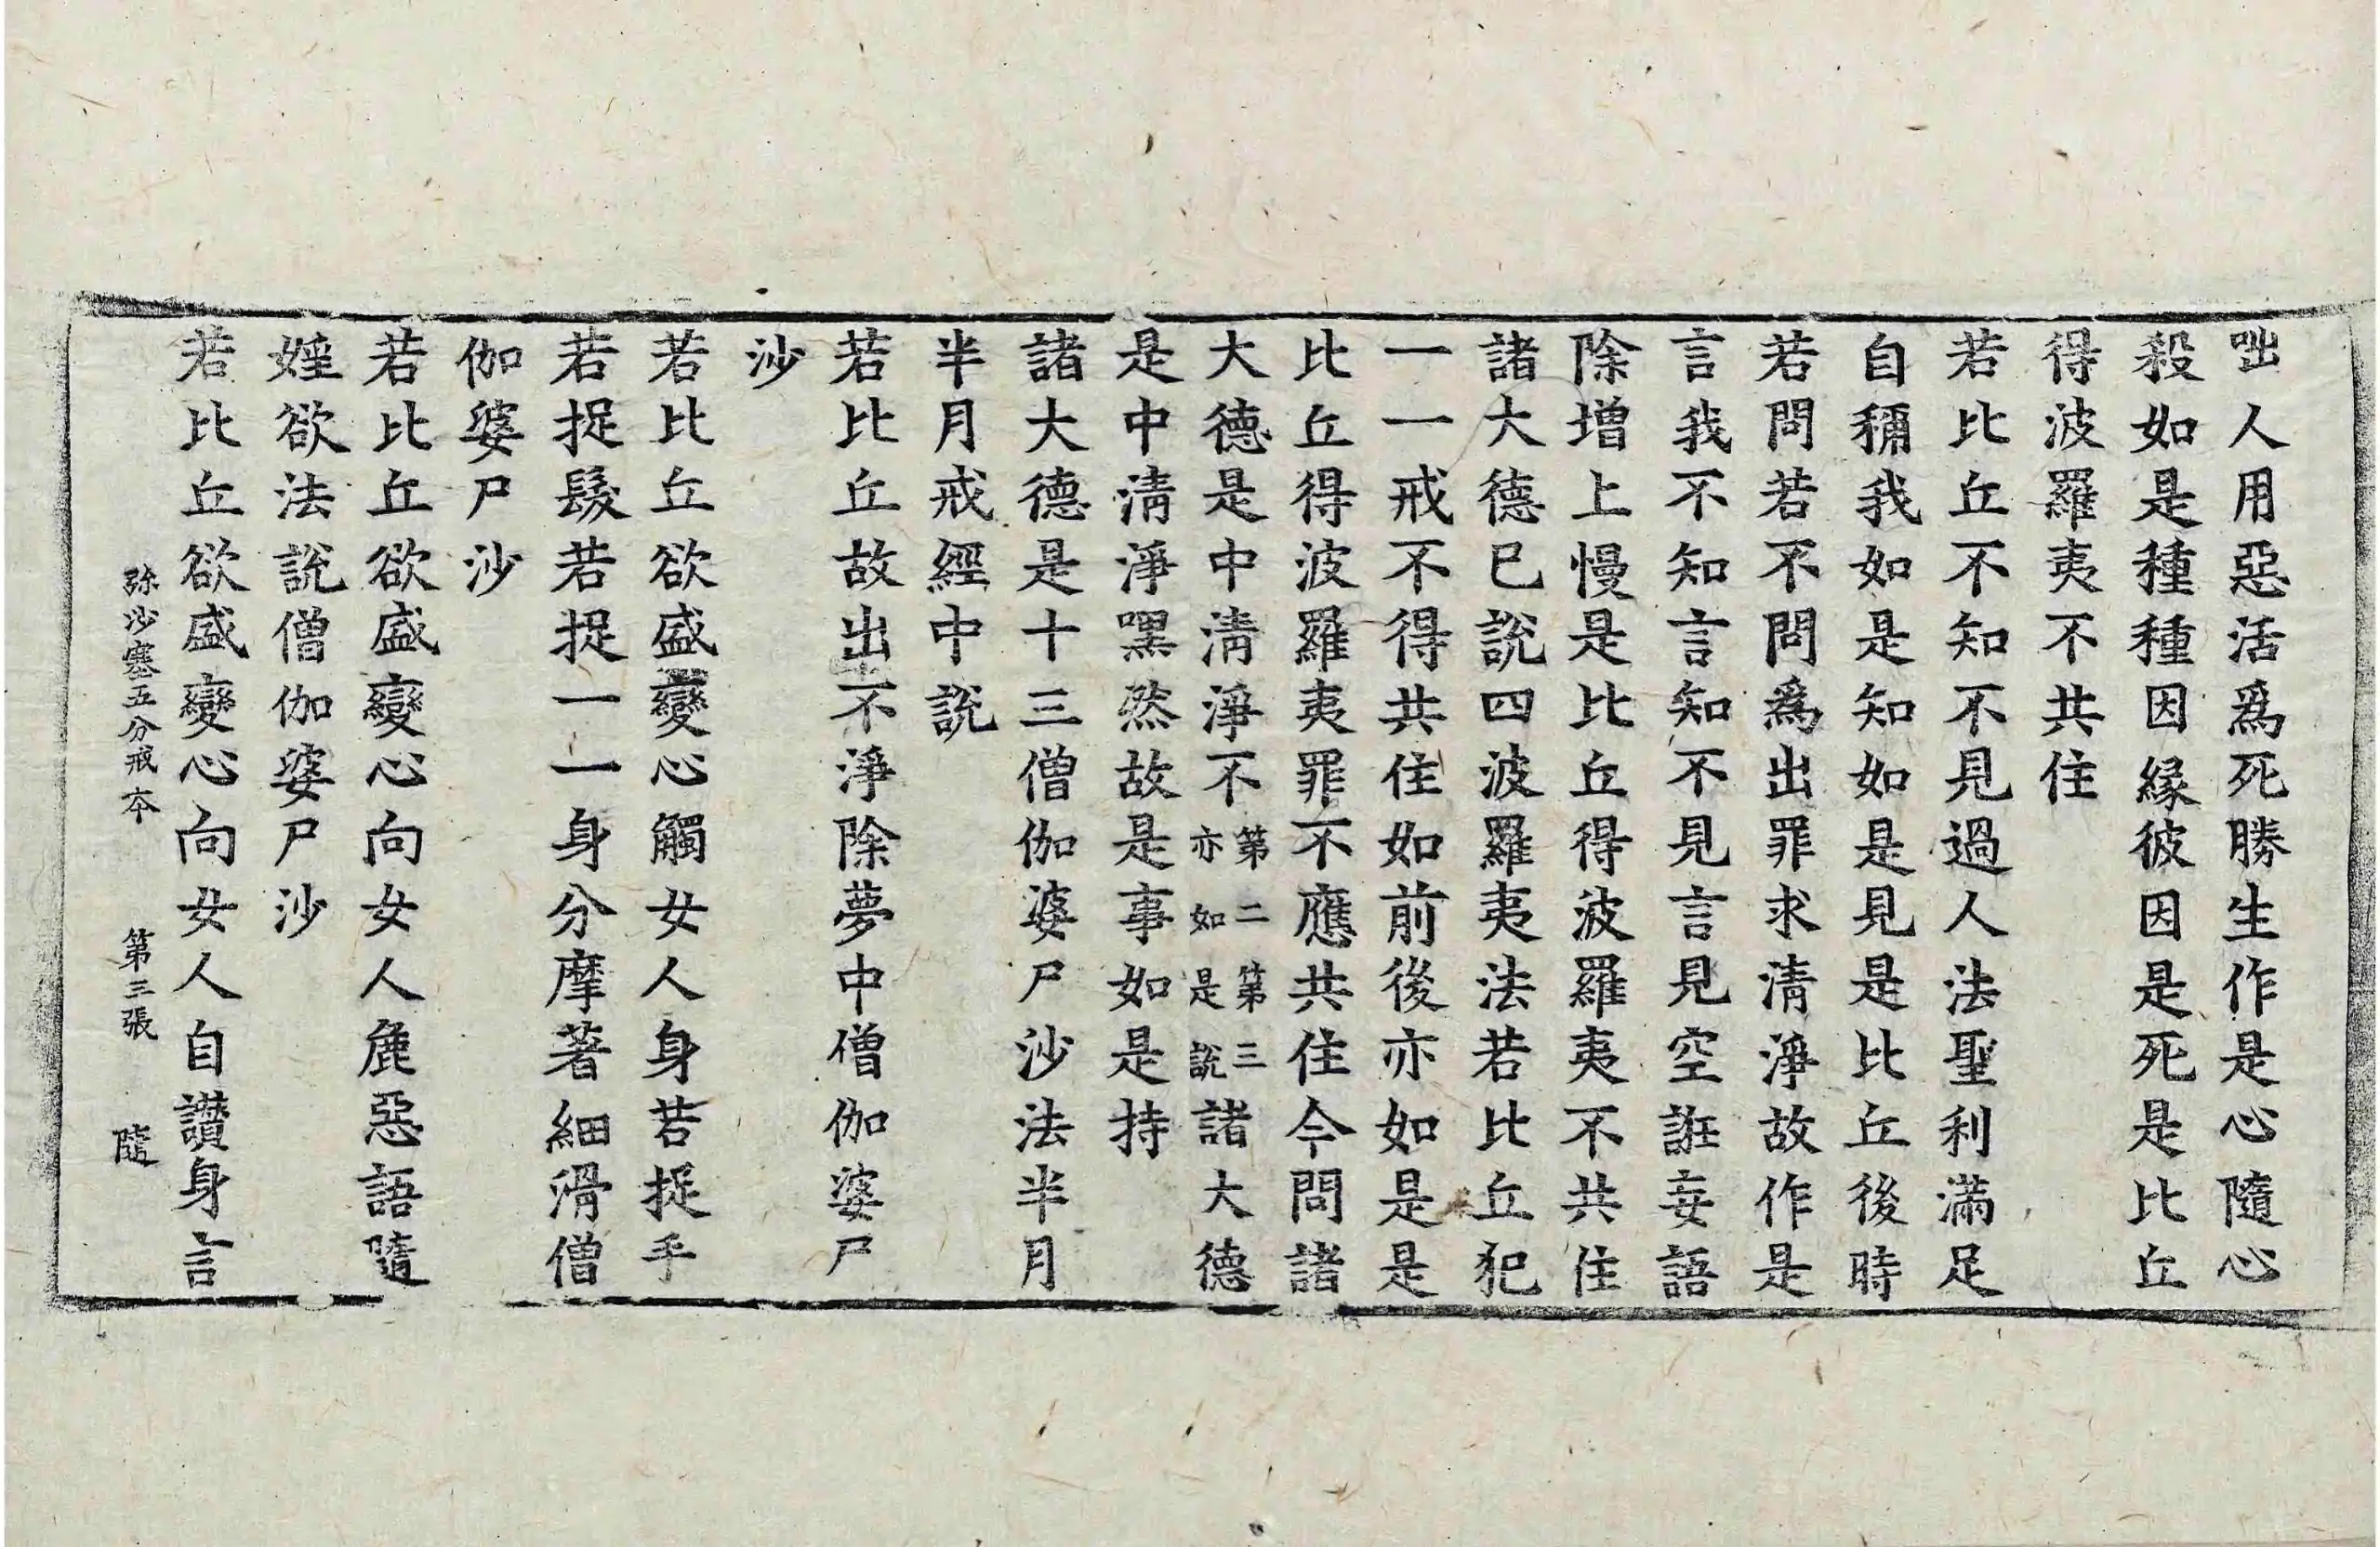 咄人用惡活爲死勝生作是心隨心
殺如是種種因緣彼因是死是比丘
得波羅夷不共住
若比丘不知不見過人法聖利滿足
自稱我如是知如是見是比丘後時
若問若不問爲出罪求清淨故作是
言我不知言知不見言見空誑妄語
除增上慢是比丘得波羅夷不共住
諸大德已說四波羅夷法若比丘犯
一一戒不得共住如前後亦如是是
比丘得波羅夷罪不應共住今問諸
大德是中清淨不第二第三亦如是說諸大德
是中清淨嘿然故是事如是持
諸大德是十三僧伽婆尸沙法半月
半月戒經中說
若比丘故出不淨除夢中僧伽婆尸
沙
若比丘欲盛變心觸女人身若捉手
若捉髮若捉一一身分摩著細滑僧
伽婆尸沙
若比丘欲盛變心向女人麁惡語隨
婬欲法說僧伽婆尸沙
若比丘欲盛變心向女人自讃身言
弥沙塞五分戒本 第三張 隨